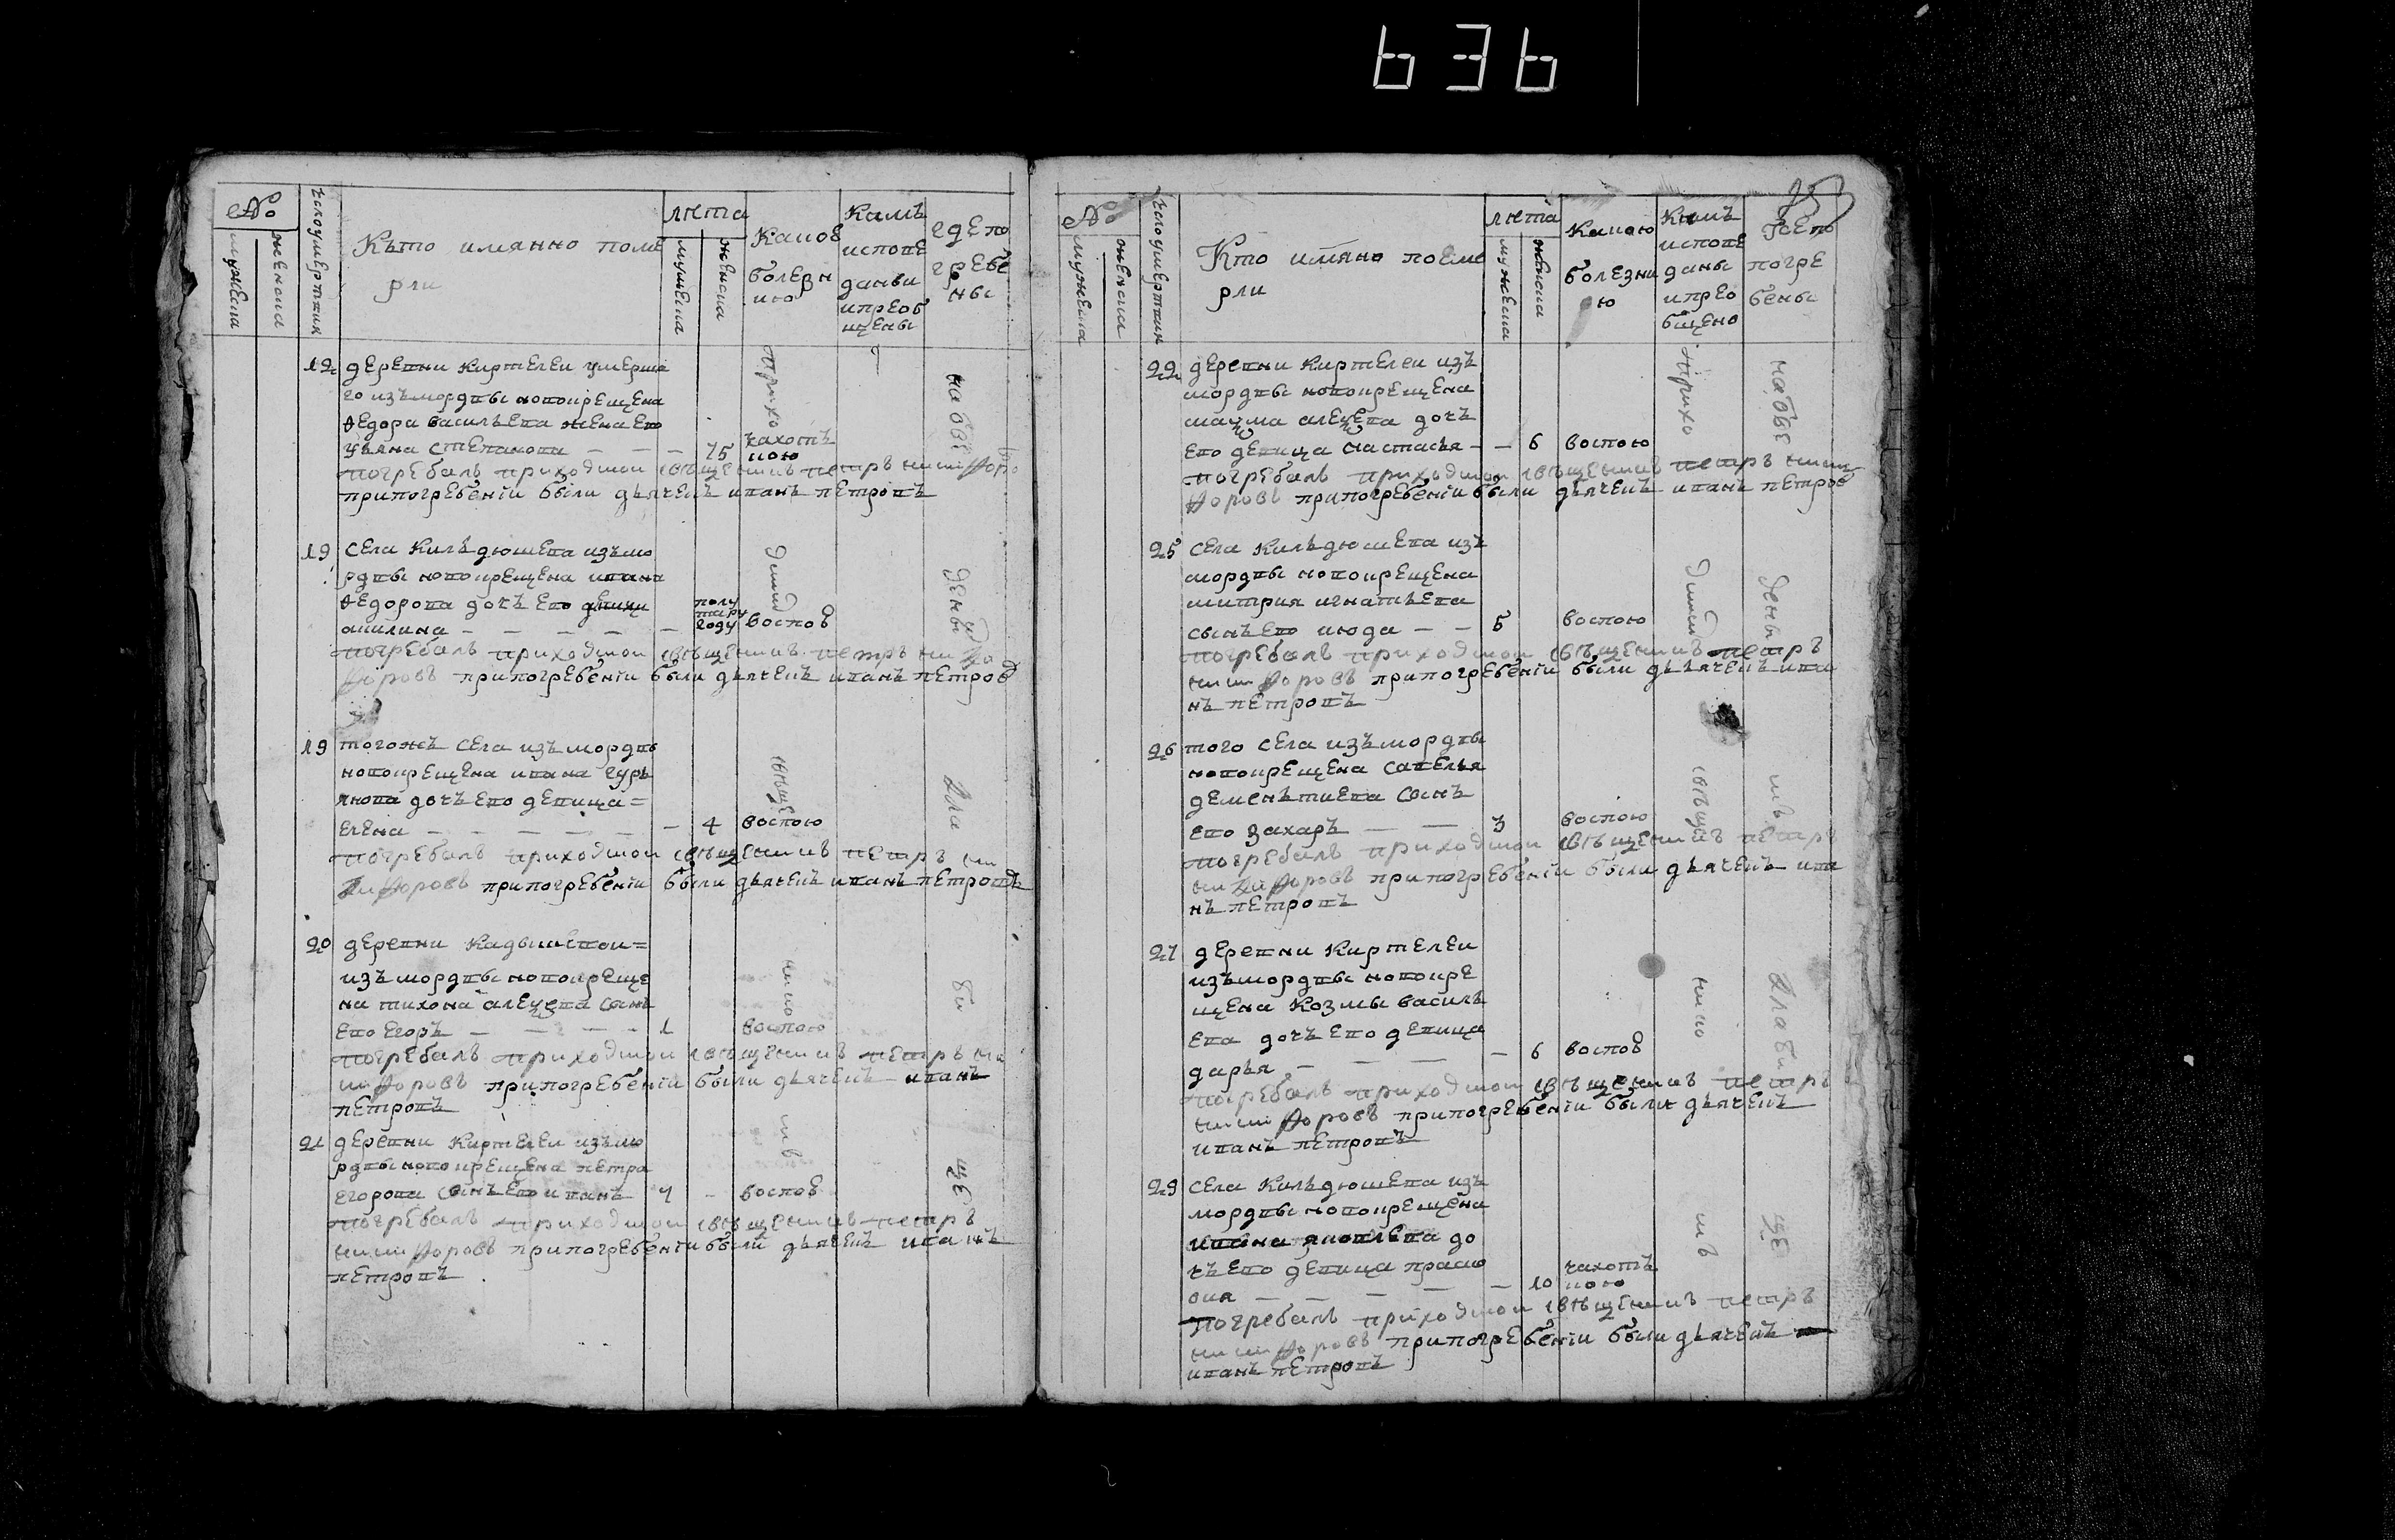 636
№
мужеска
женска
числоумертвия
Къто имянно поме
рли
лета
мужеска
женска
Какое
болезн
ию
Кемъ
исповеданы
и преобщены
где по
гребе
ны
12 деревни Киртелеи умерша
го изъ мордвы новокрещена
Федора васильева жена ево
ульяна степанова — — — 75 чахоть
кою
погребалъ приходскои священникъ петръ никифоро
припогребенiи были дьячекъ иванъ петровъ
19 села Кильдюшева изъ мо
рдвы новокрещена ивана
Федорова дочь ево девица
акилина — — — — — полу
тару
году воспою
погребалъ приходскои священникъ петръ ники
форовъ припогребенiи были дьячекъ иванъ петров
19 тогожъ села изъ мордвы
новокрещена ивана гурь
янова дочь ево девица =
елена — — — — — 4 воспою
погребалъ приходскои священникъ петръ ни
кифоровъ припогребенiи были дьячекъ иванъ петровъ
20 деревни Кадышевои =
изъ мордвы новокреще
на тихона алеѯеева сынъ
ево егоръ — — — — 1 воспою
погребалъ приходскои священникъ петръ ни
кифоровъ припогребенiи были дьячекъ иванъ
петровъ
21 деревни Киртелеи изъ мо
рдвы новокрещена петра
егорова сынъ ево иванъ 4 - воспою
погребалъ приходскои священникъ петръ
никифоровъ припогребенiи были дьячекъ иванъ
петровъ
прихо
дцким
священ
нико
мъ
на обе
денны
кла
би
ще
№
мужеска
женска
числоумертвия
Кто имяно поеме
рли
лета
мужеска
женска
Какою
болезни
ю
Кемъ
испове
даны
и прео
бщено
где
погре
бены
22 деревни Киртелеи изъ
мордвы новокрещена
алеѯеева дочь
ево девица настасья — — 6 воспою
погребалъ приходскои священникъ петръ ники
форовъ припогребенiи были дьячекъ иванъ петров
25 села Кильдюшева изъ
мордвы новокрещена
митрия игнатьева
сынъ ево июда — — 5 воспою
погребалъ приходскои священникъ петръ
никифоровъ припогребенiи были дьячекъ ива
нъ петровъ
26 того села изъ мордвы
новокрещена савелья
дементиева сынъ
ево захаръ — — 3 воспою
погребалъ приходскои священникъ петръ
никифоровъ припогребенiи были дьячекъ ива
нъ петровъ
27 деревни Киртелеи
изъ мордвы новокре
щена Козмы василь
ева дочь ево девица
дарья — — — — 6 воспою
погребалъ приходскои священникъ петръ
никифоровъ припогребенiи были дьячекъ
иванъ петровъ
29 села Кильдюшева изъ
мордвы новокрещена
ивана яковлева до
чь ево девица праско
вия — — — — — 10 чахоть
кою
погребалъ приходскои священникъ петръ
никифоровъ припогребенiи были дьячекъ
иванъ петровъ
прихо
дцким
священ
нико
мъ
на обе
денны
мъ
клаби
ще